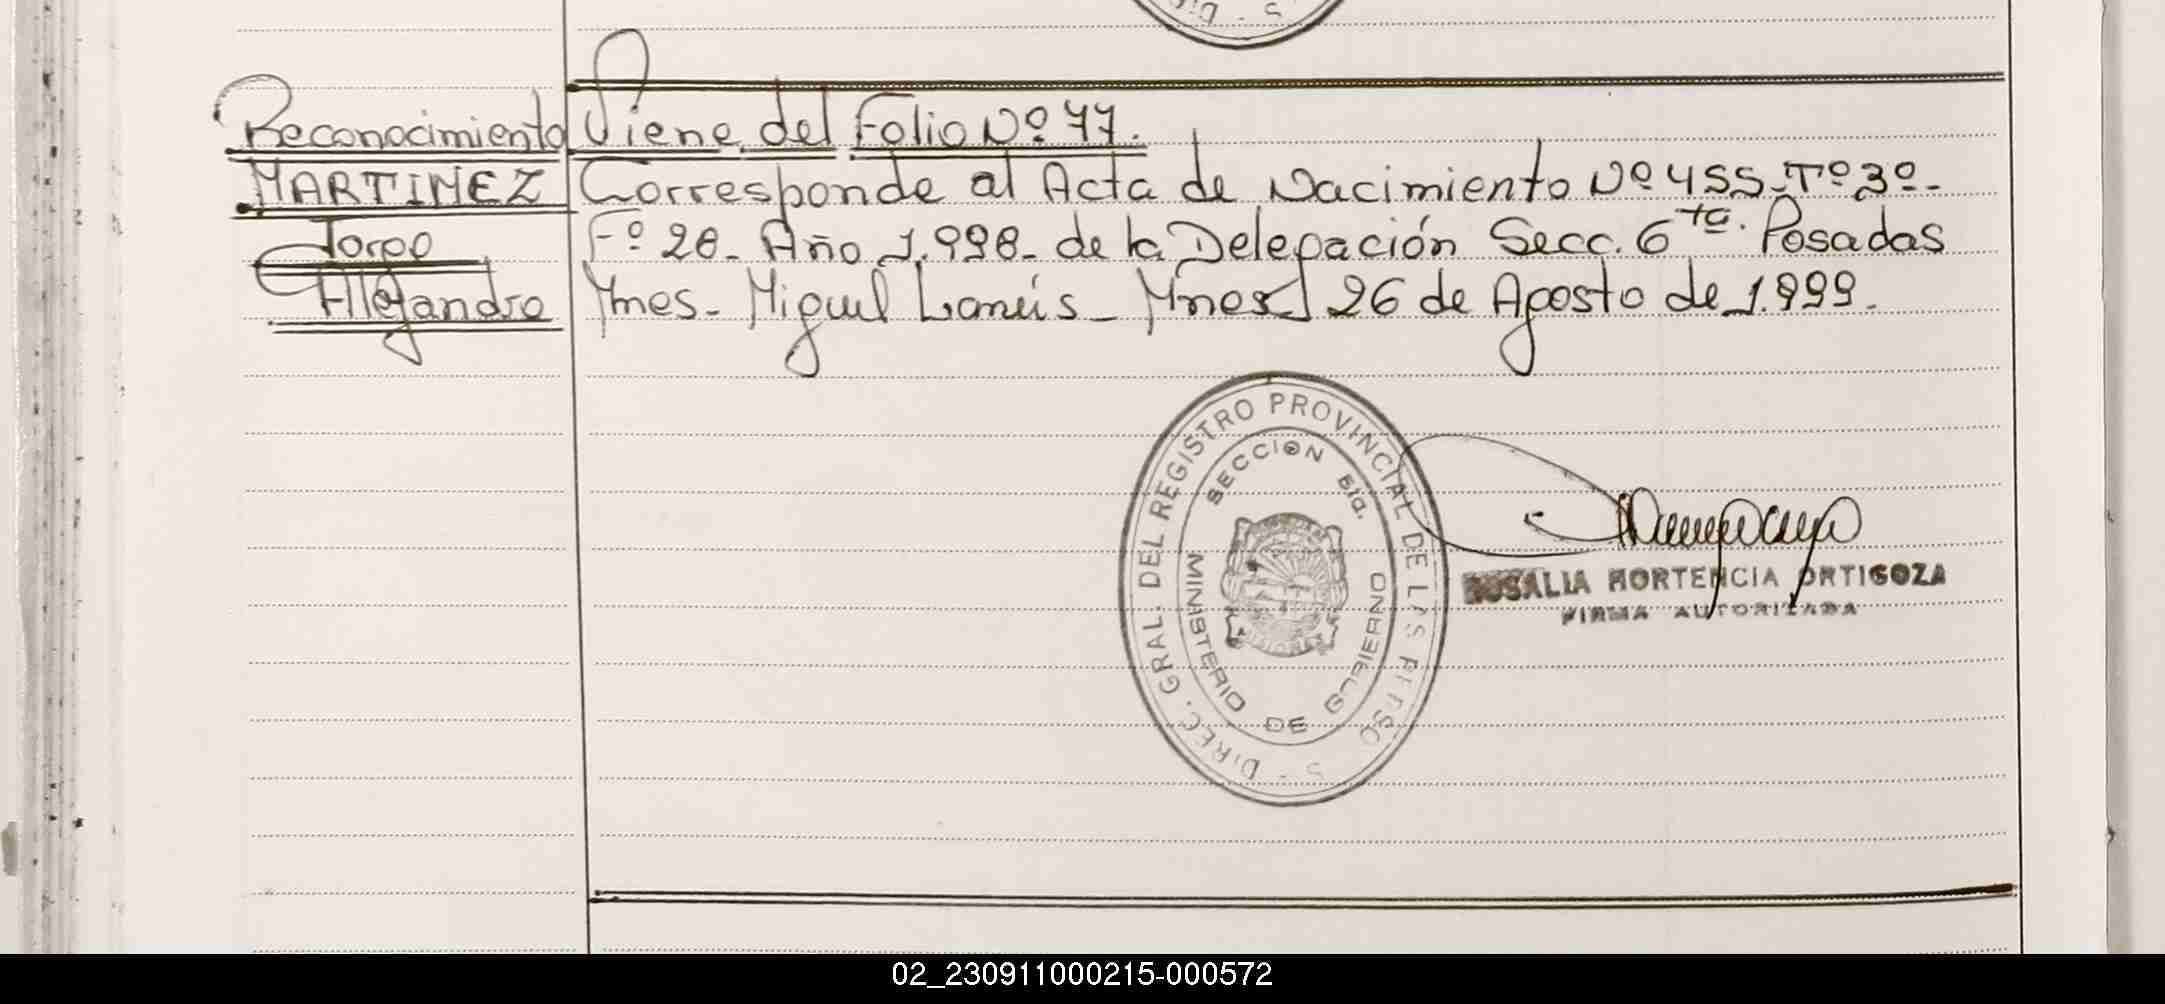 Reconocimiento
MARTINEZ
Jorge
Alejandro
Viene del Folio Nº 77.
Corresponde al Acta de Nacimiento Nº 455. Tº 3º.
Fº 28. Año 1.998. de la Delegación Secc. 6ta. Posadas
Mnes. Miguel Lanús. Mnes 26 de Agosto de 1.999.
DIREC. GRAL. DEL REGISTRO PROVINCIAL DE LAS PERSO S
SECCION 6ta.
MINISTERIO DE GOBIERNO
ROSALIA HORTENCIA ORTIGOZA
FIRMA AUTORIZADA
02_230911000215-000572